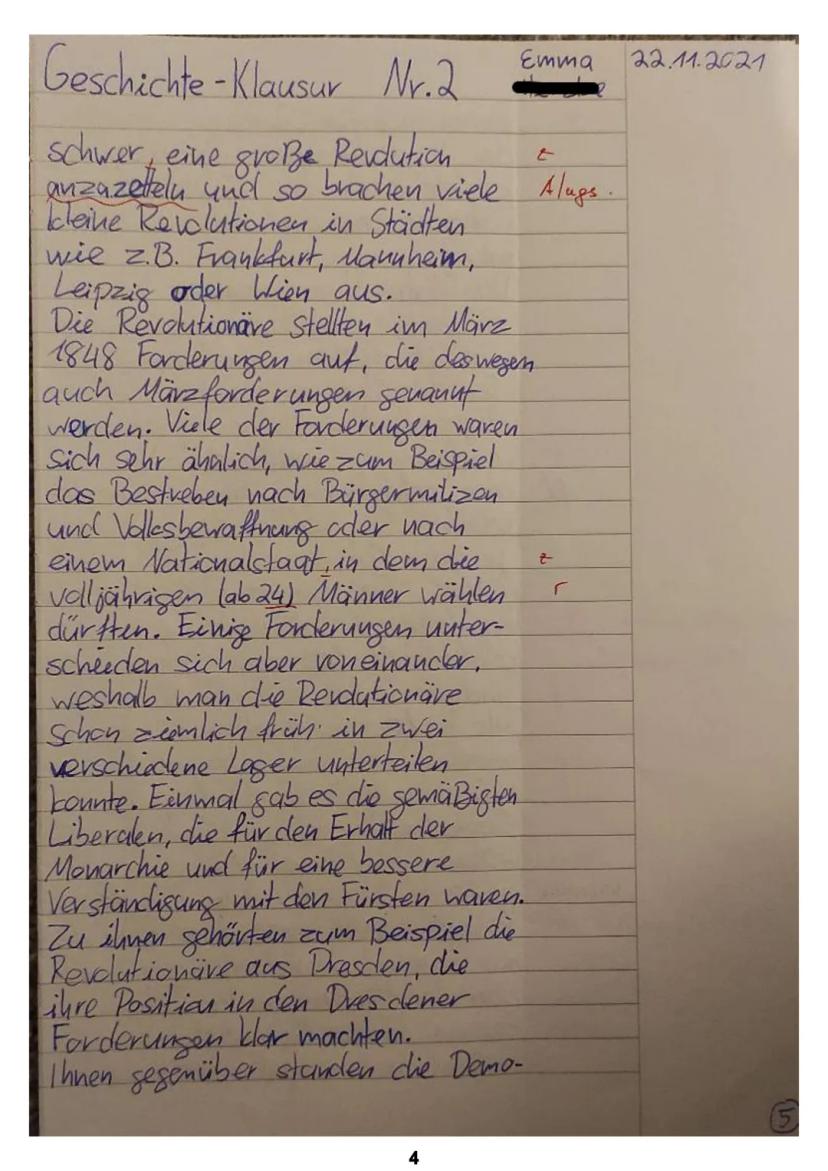 Geschichte-Klausur Nr.2 Emma 22.11.2021
schwer, eine große Revolution z
anzuzetteln und so brachen viele A/ugs.
kleine Revolutionen in Städten
wie z.B. Frankfurt, Mannheim,
Leipzig oder Wien aus.
Die Revolutionäre stellten im März
1848 Forderungen auf, die deswegen
auch Märzforderungen genannt
werden. Viele der Forderungen waren
sich sehr ähnlich, wie zum Beispiel
das Bestreben nach Bürgermilizen
und Volksbewaffnung oder nach
einem Nationalstaat, in dem die z
volljährigen (ab 24) Männer wählen r
dürften. Einige Forderungen unter-
schieden sich aber voneinander,
weshalb man die Revolutionäre
schon ziemlich früh in zwei
verschiedene Lager unterteilen
konnte. Einmal gab es die gemäßigten
Liberalen, die für den Erhalt der
Monarchie und für eine bessere
Verständigung mit den Fürsten waren.
Zu ihnen gehörten zum Beispiel die
Revolutionäre aus Dresden, die
ihre Position in den Dresdener
Forderungen klar machten.
Ihnen gegenüber standen die Demo-
5
4